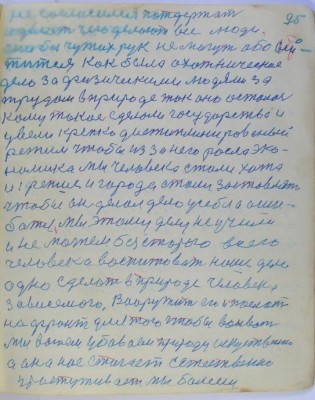 95
не согласился поддержат
сделат что делают все люди.
чтобы чужих рук не могут обойти-
титися как была охотническое
дело за физическими людями за
трудом в природе так оно осталос
кому такое сделали государство и
увели крепко дистиплинировоный
режим чтобы из за него росла эко-
номика мы человека стали хата
и и города стали заставлять
чтобы он делал дело учебла оши-
батся, мы этому делу не учили
и не можем без старого всего
человека воспитоват наше дело
одно сделат в природе человека
зависемого, Вооружит его и послат
на фронт для того чтобы воеват
мы

убоваем природу искуствено
а она нас стигает естественно
простуживает мы болеем